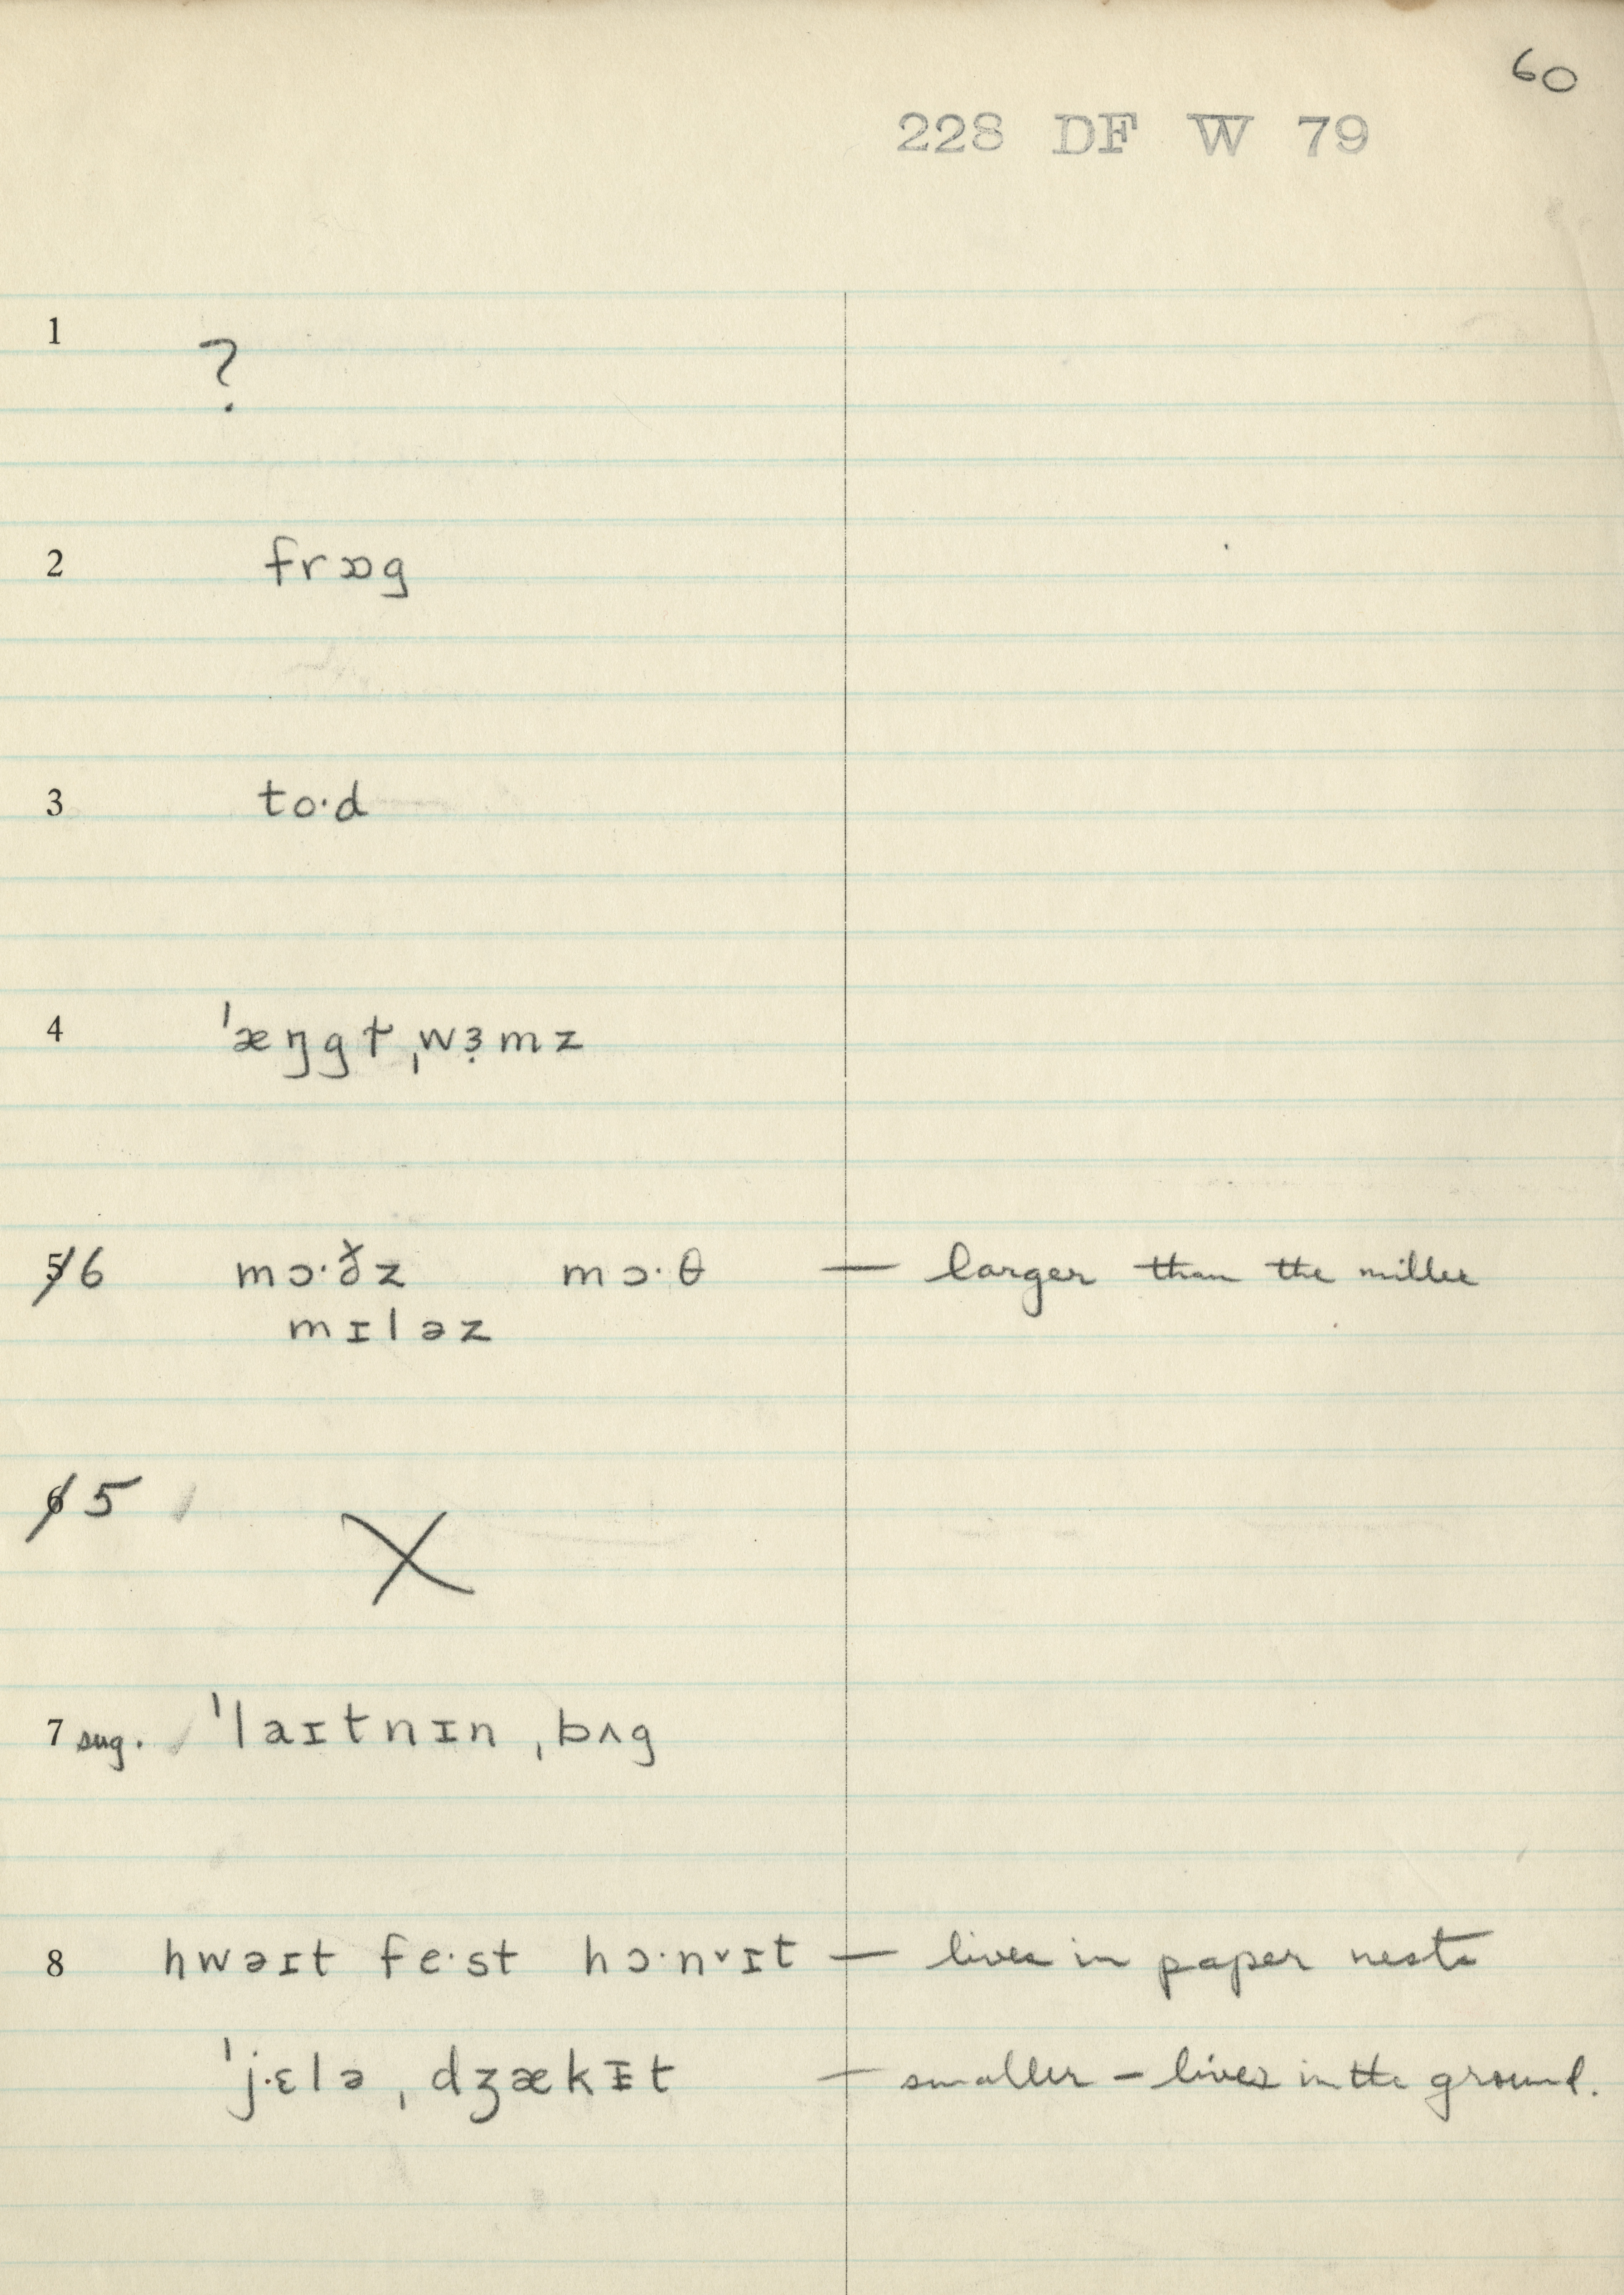 60
228 DF W 79
1 ?
2 frɒg
3 to·d
4 ˈæŋgɫ ˌwɜ̣mz
5 6 mɔ·ðz mɔ·θ — larger than the miller
mɪləz
6 5 X
7 sug. ˈlaɪtnɪn ˌbʌg
8 hwəɪt fe·st hɔ·nᵛɪt — lives in paper nests
ˈj·ɛlə ˌdʒækɪ̵t — smaller – lives in the ground.